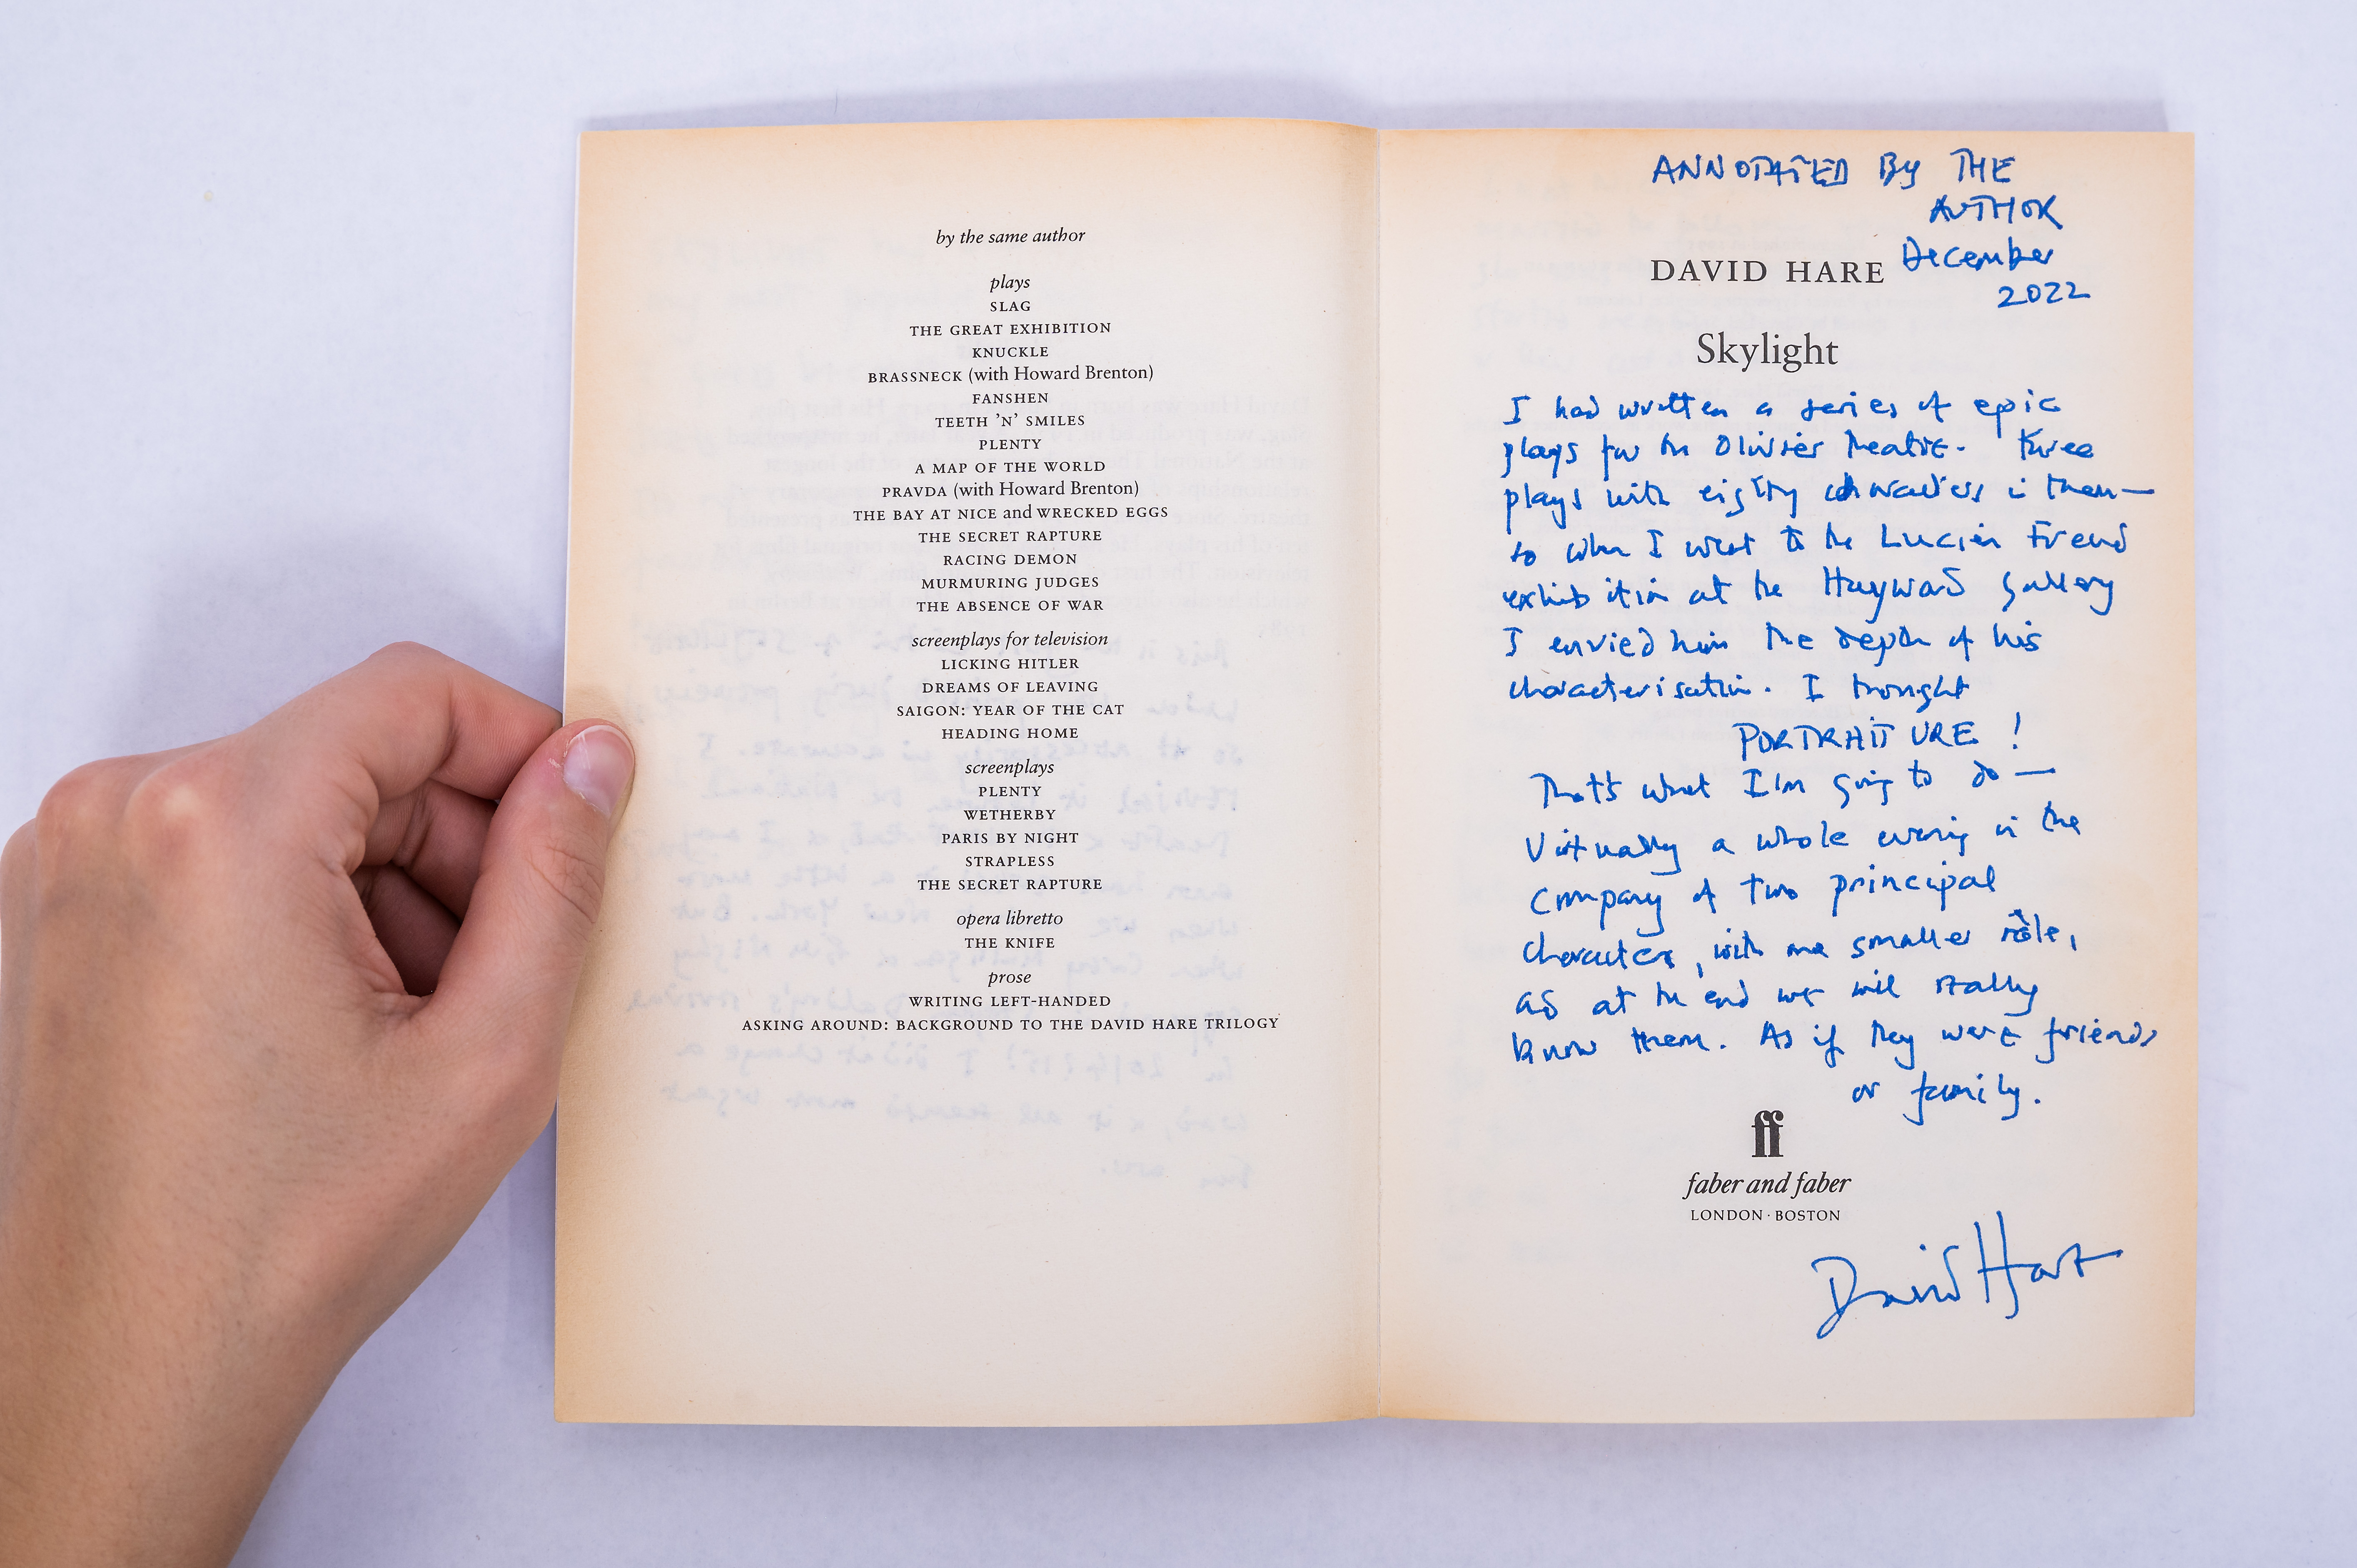 by the same author
plays
SLAG
THE GREAT EXHIBITION
KNUCKLE
BRASSNECK (with Howard Brenton)
FANSHEN
TEETH 'N' SMILES
PLENTY
A MAP OF THE WORLD
PRAVDA (with Howard Brenton)
THE BAY AT NICE and WRECKED EGGS
THE SECRET RAPTURE
RACING DEMON
MURMURING JUDGES
THE ABSENCE OF WAR
screenplays for television
LICKING HITLER
DREAMS OF LEAVING
SAIGON: YEAR OF THE CAT
HEADING HOME
screenplays
PLENTY
WETHERBY
PARIS BY NIGHT
STRAPLESS
THE SECRET RAPTURE
opera libretto
THE KNIFE
prose
WRITING LEFT-HANDED
ASKING AROUND: BACKGROUND TO THE DAVID HARE TRILOGY
ANNOTATED BY THE
AUTHOR
December
2022
DAVID HARE
Skylight
I had written a series of epic
plays for the Olivier Theatre. Three
plays with eighty characters in them—
so when I went to the Lucien Freud
exhibition at the Hayward Gallery
I envied him the depth of his
characterisation. I thought
PORTRAITURE!
That's what I'm going to do —
Virtually a whole evening in the
company of two principal
characters, with one smaller rôle,
as at the end we will really
know them. As if they were friends
or family.
ff
faber and faber
LONDON · BOSTON
David Hare